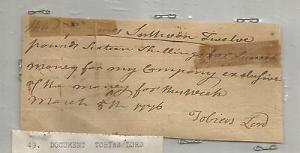 Sullivan Twelve
pounds Sixteen Shillings for
money for my Company exclusive
of the money for this week
March 5th 1776
Tobias Lord
49. DOCUMENT TOBIAS LORD